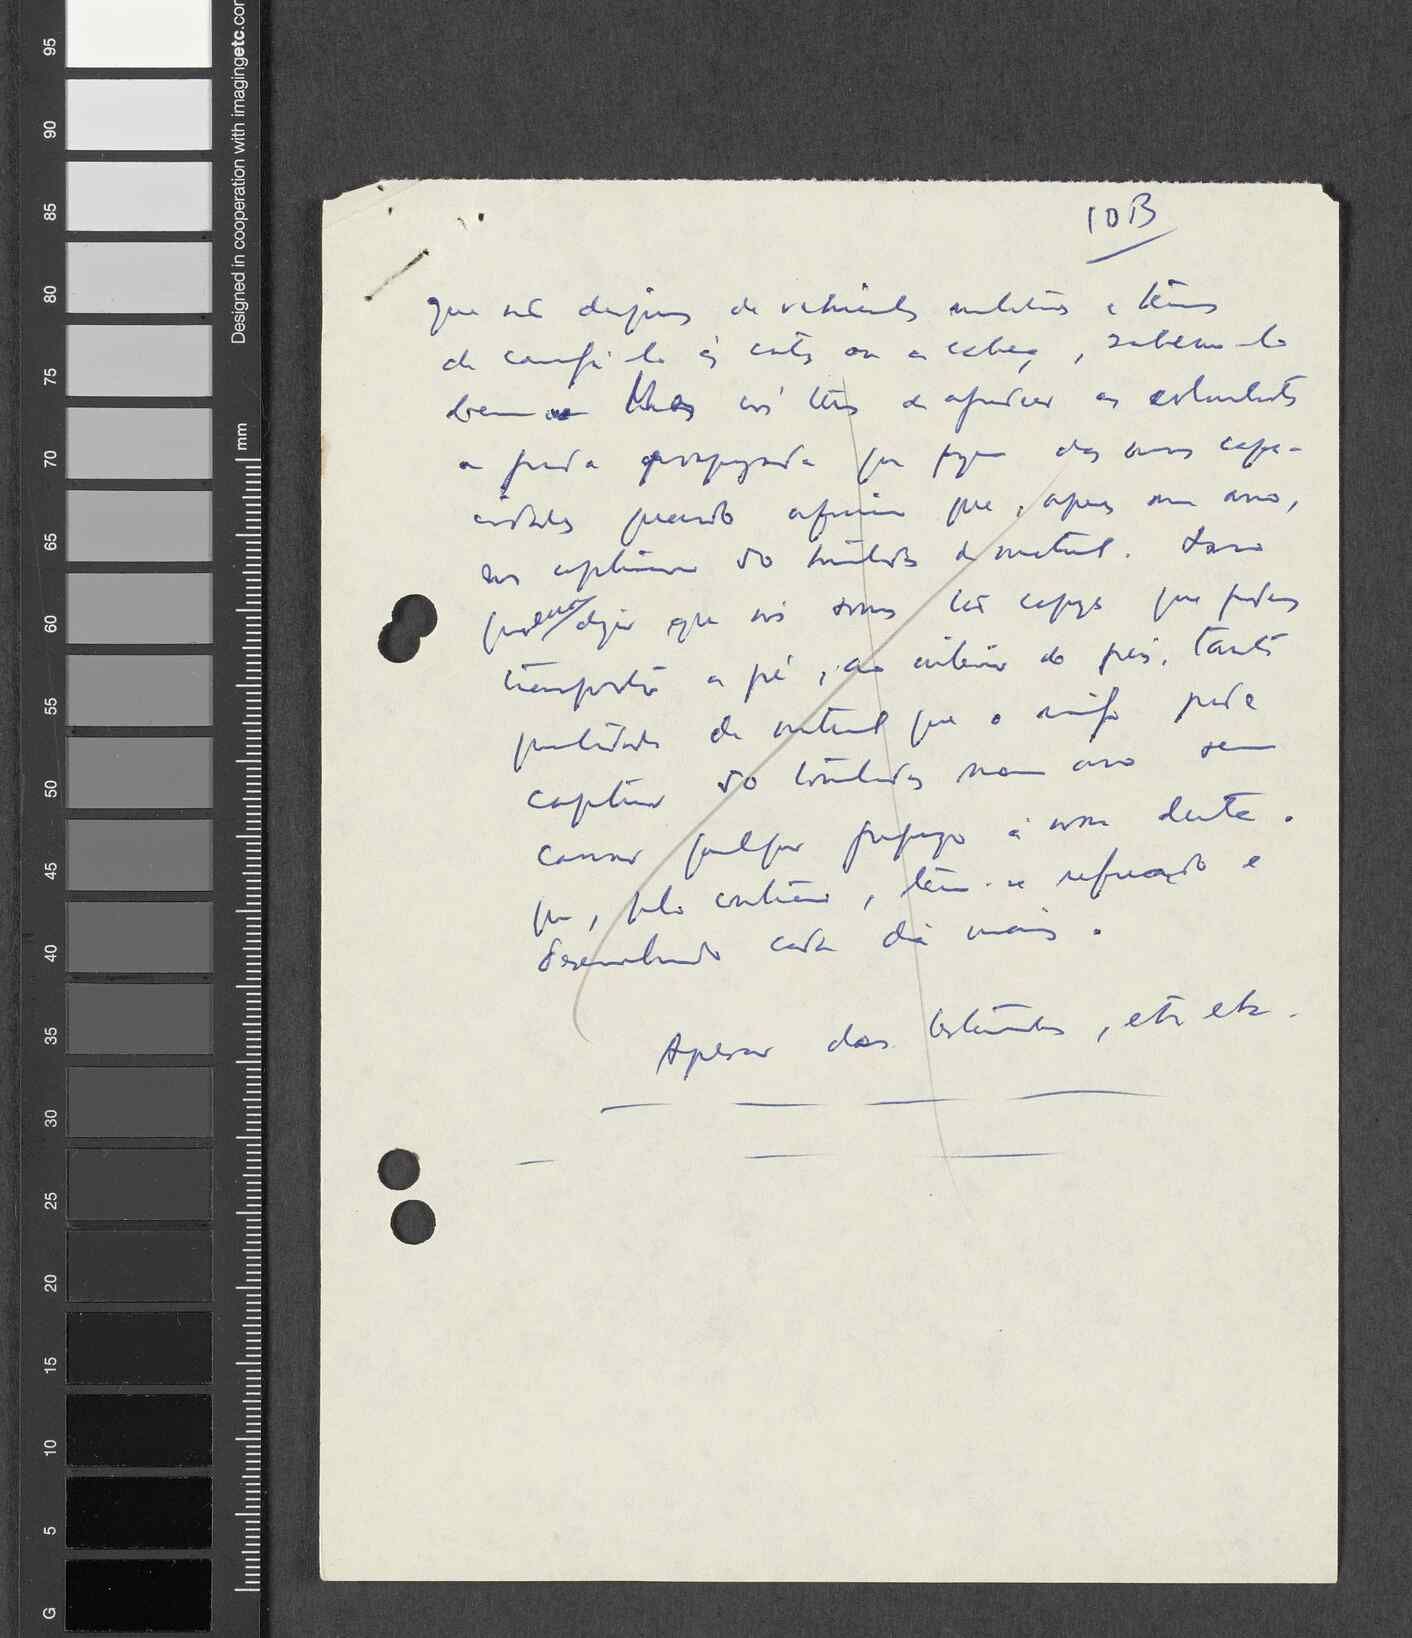 10B
que não dispomos de vehiculos militares e temos
de carregá-lo às costas ou a cabeça, sabemo-lo
bem Mas nós temos de agradecer aos colonialistas
a grande propaganda que fazem das nossas capa-
cidades quando afirmam que, apenas num ano,
nos capturaram 50 toneladas de material. Isso
quer dizer que nós somos tão capazes que podemos
transportar a pé, ao interior do país, tanta
quantidade de material que o inimigo pode
capturar 50 toneladas num ano sem
causar qualquer prejuízo à nossa luta.
que, pelo contrário, tem-se reforçado e
desenvolvido cada dia mais.
Apesar das tentativas, etc etc.
95
90
85
80
75
70
65
60
55
50
45
40
35
30
25
20
15
10
5
G
Designed in cooperation with imagingetc.com
mm